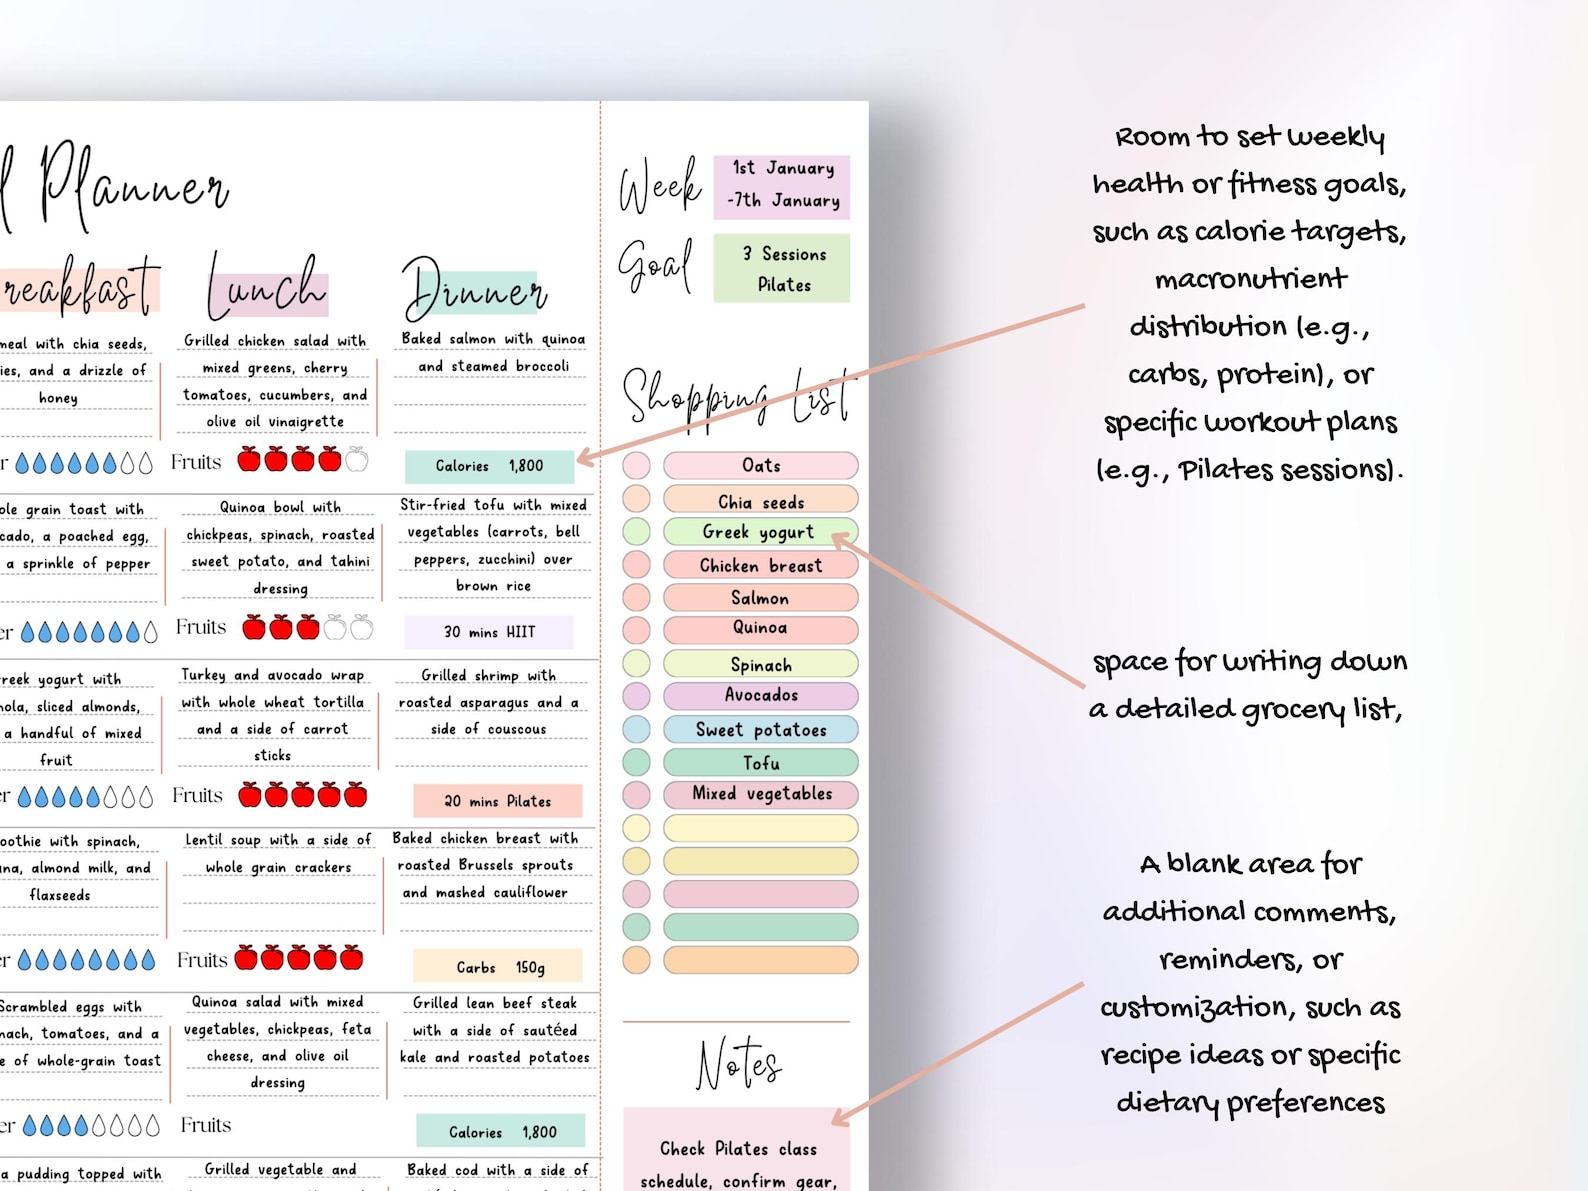 l Planner
reakfast
Lunch
Dinner
meal with chia seeds,
ies, and a drizzle of
honey
Grilled chicken salad with
mixed greens, cherry
tomatoes, cucumbers, and
olive oil vinaigrette
Baked salmon with quinoa
and steamed broccoli
r
Fruits
Calories 1,800
ole grain toast with
cado, a poached egg,
a sprinkle of pepper
Quinoa bowl with
chickpeas, spinach, roasted
sweet potato, and tahini
dressing
Stir-fried tofu with mixed
vegetables (carrots, bell
peppers, zucchini) over
brown rice
er
Fruits
30 mins HIIT
reek yogurt with
nola, sliced almonds,
a handful of mixed
fruit
Turkey and avocado wrap
with whole wheat tortilla
and a side of carrot
sticks
Grilled shrimp with
roasted asparagus and a
side of couscous
er
Fruits
20 mins Pilates
oothie with spinach,
ana, almond milk, and
flaxseeds
Lentil soup with a side of
whole grain crackers
Baked chicken breast with
roasted Brussels sprouts
and mashed cauliflower
er
Fruits
Carbs 150g
Scrambled eggs with
nach, tomatoes, and a
e of whole-grain toast
Quinoa salad with mixed
vegetables, chickpeas, feta
cheese, and olive oil
dressing
Grilled lean beef steak
with a side of sautéed
kale and roasted potatoes
er
Fruits
Calories 1,800
a pudding topped with
Grilled vegetable and
Baked cod with a side of
Week
1st January
-7th January
Goal
3 Sessions
Pilates
Shopping List
Oats
Chia seeds
Greek yogurt
Chicken breast
Salmon
Quinoa
Spinach
Avocados
Sweet potatoes
Tofu
Mixed vegetables
Notes
Check Pilates class
schedule, confirm gear,
Room to set weekly
health or fitness goals,
such as calorie targets,
macronutrient
distribution (e.g.,
carbs, protein), or
specific workout plans
(e.g., Pilates sessions).
space for writing down
a detailed grocery list,
A blank area for
additional comments,
reminders, or
customization, such as
recipe ideas or specific
dietary preferences